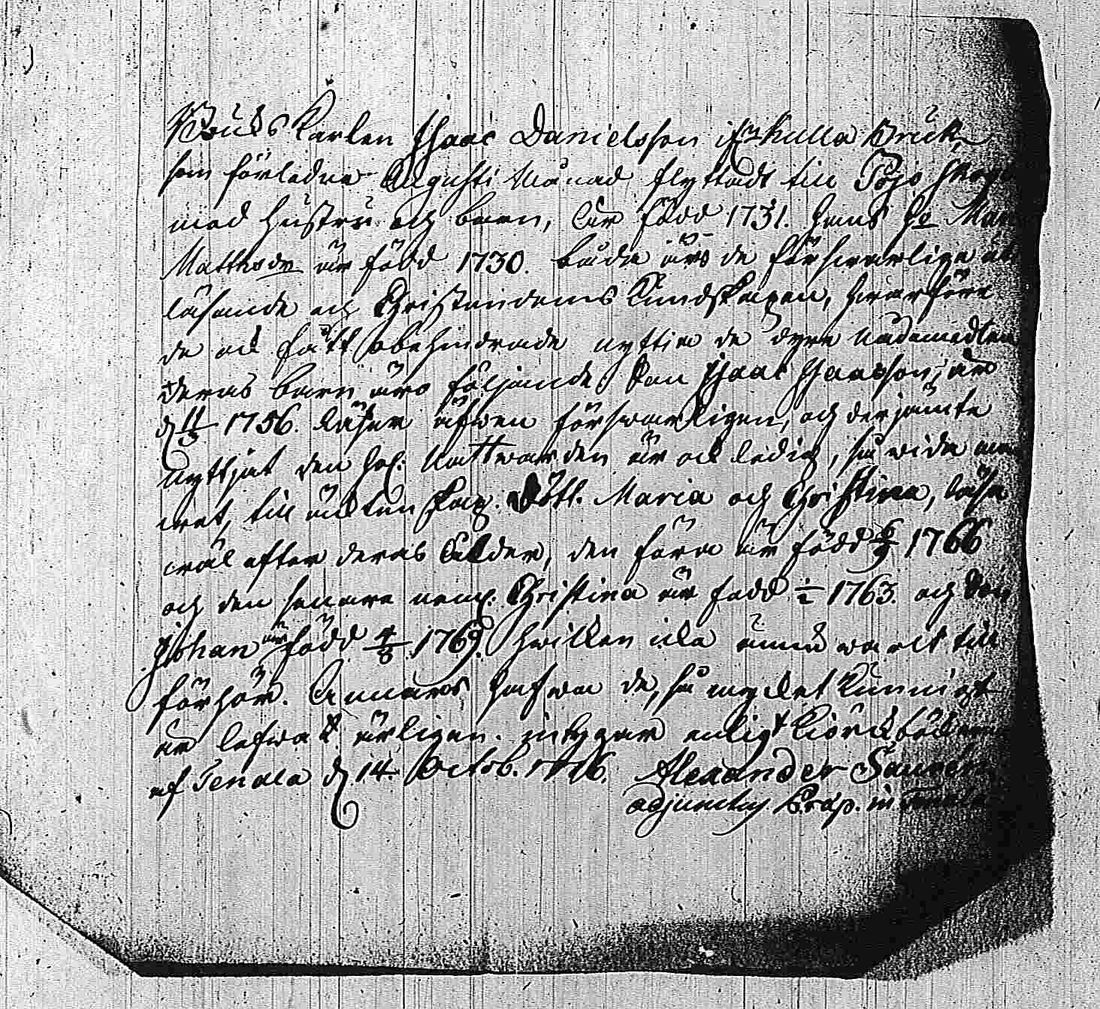 Bruks Karlen Isaac Danielsson ifr. Kulla Bruk,
som förledne Augusti Månad flyttadt till Pojo
med hustru och barn, är född 1731. hans h: Mar
Mattsdr är född 1730. både äro de förswarlige
läsande och Christendoms Kundskapen, hwarföre
de ock fått obehindrade nyttia de dyre nådemedlen
deras barn äro följande Son Isaac Isaacsson, är
d 1756. läser äfwen förswarligen, och derjämte
nyttjat den hel. Nattwarden är ock ledig, så wida
wet, till äckten skap. Dött. Maria och Christina, läsa
wäl efter deras ålder, den förra är född 1766
och den senare neml. Christina är född 1763. och Son
Johan är född 1769. hwilken icke ännu warit till
förhör. Annars hafwa de, så mycket kunnigt
är lefwat ärligen. intygar enligt Kiörckböckerne
af Tenala d 14 Octob. 1776. Alexander
adjunctus Past. in Tenala